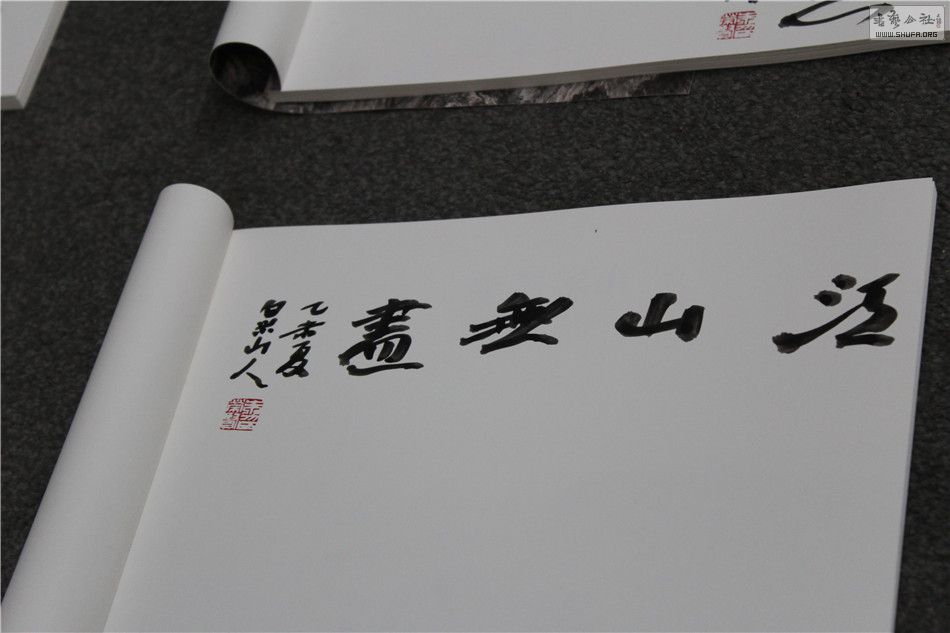 江山無盡
乙未夏
白水山人
書藝公社
WWW.SHUFA.ORG